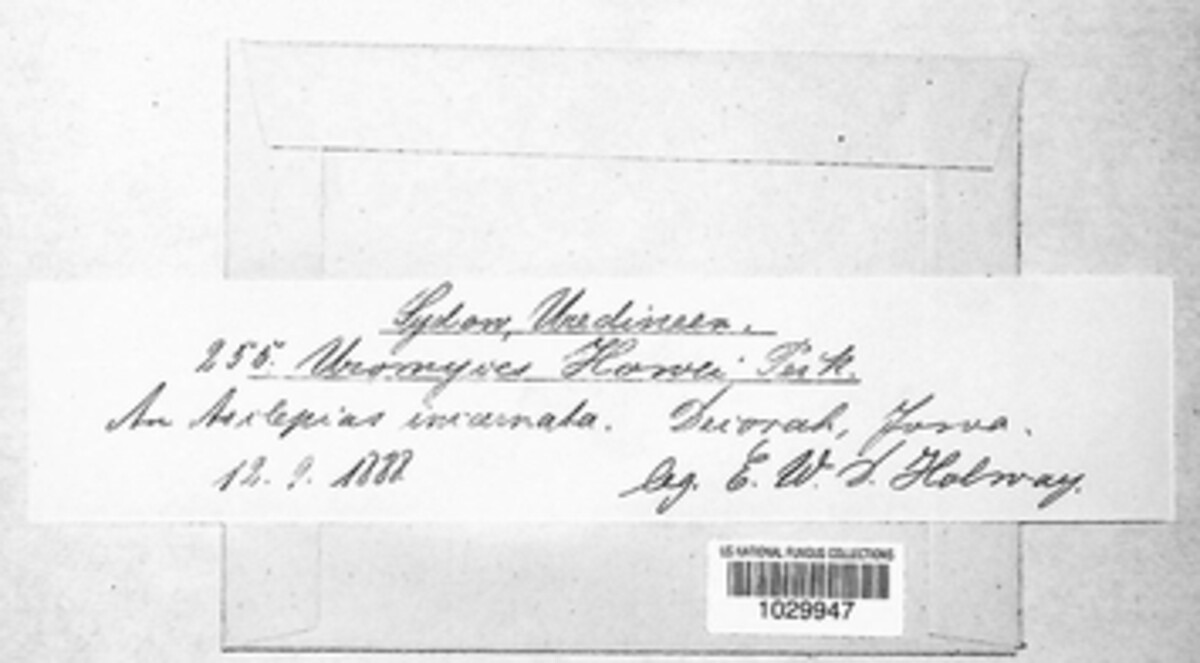 Sydow, Uredineen.
255. Uromyces Howei Peck.
An Asclepias incarnata. Decorah, Iowa.
12. 9. 1888 leg. E. W. D. Holway.
US NATIONAL FUNGUS COLLECTIONS
1029947